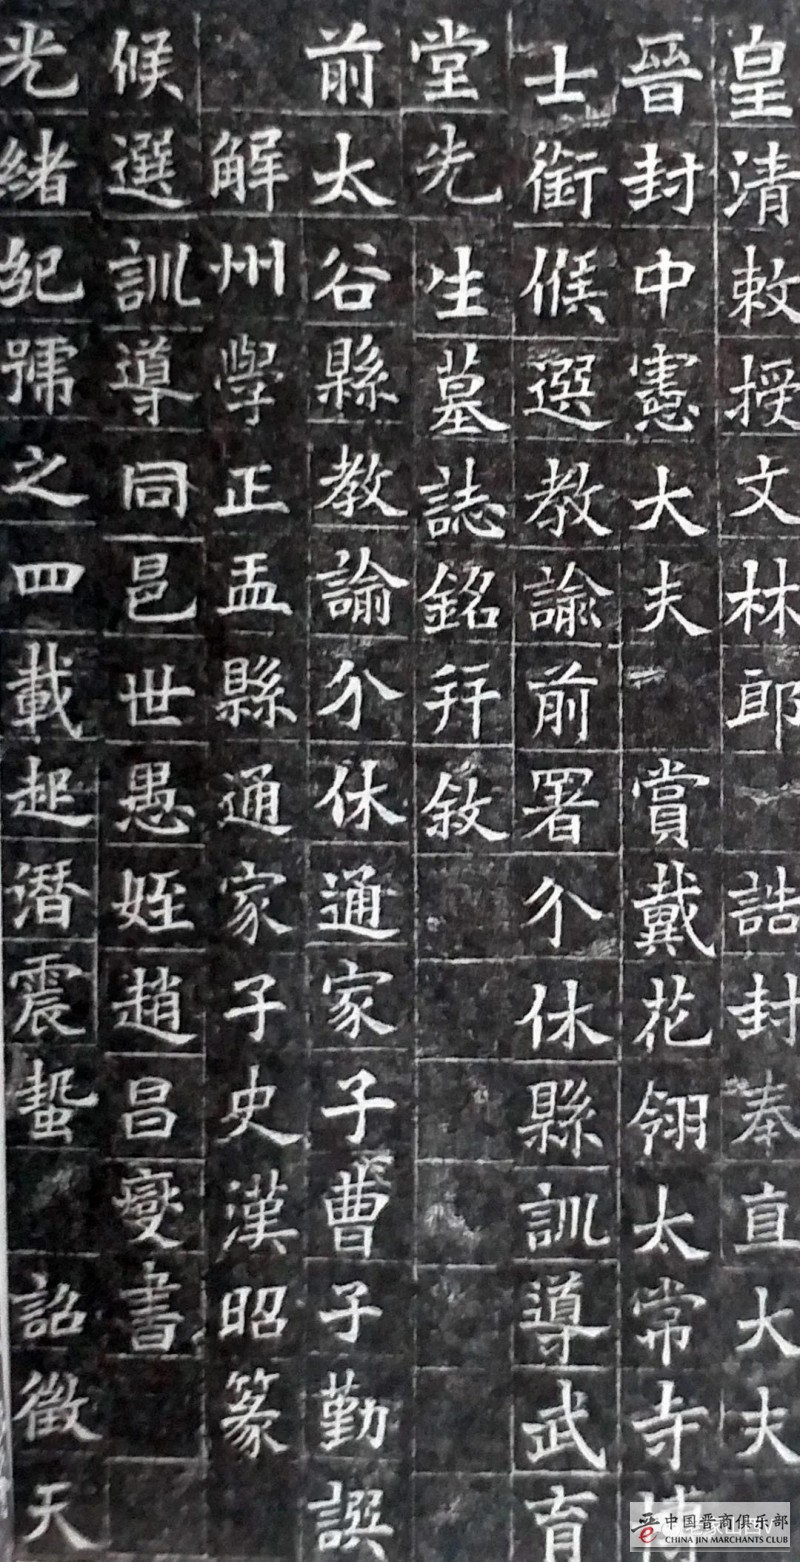 皇清敕授文林郎誥封奉直大夫
晉封中憲大夫賞戴花翎太常寺博
士銜候選教諭前署介休縣訓導武育
堂先生墓誌銘拜敘
前太谷縣教諭介休通家子曹子勤譔
解州學正盂縣通家子史漢昭篆
候選訓導同邑世愚姪趙昌燮書
光緒紀號之四載起潛震蟄詔徵天
中国晋商俱乐部
CHINA JIN MERCHANTS CLUB